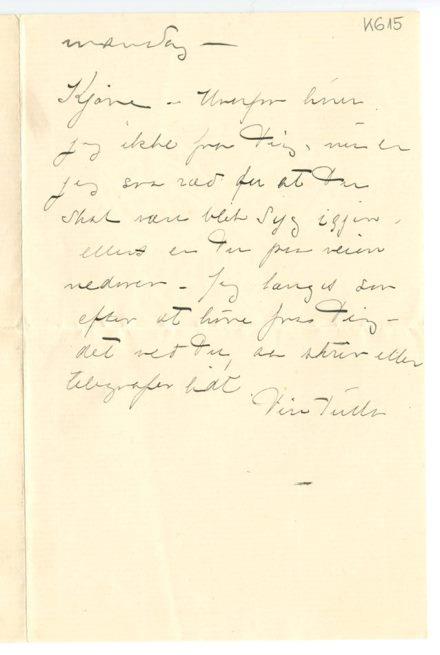 K615
mandag —
Kjære – Hvorfor hører
jeg ikke fra Dig, nu er
jeg saa ræd for at Du
skal være blet syg igjen,
eller er Du paa veien
nedover – Jeg længes saa
efter at høre fra Dig –
det ved Du, saa skriv eller
telegrafer lidt.
Din Tulla